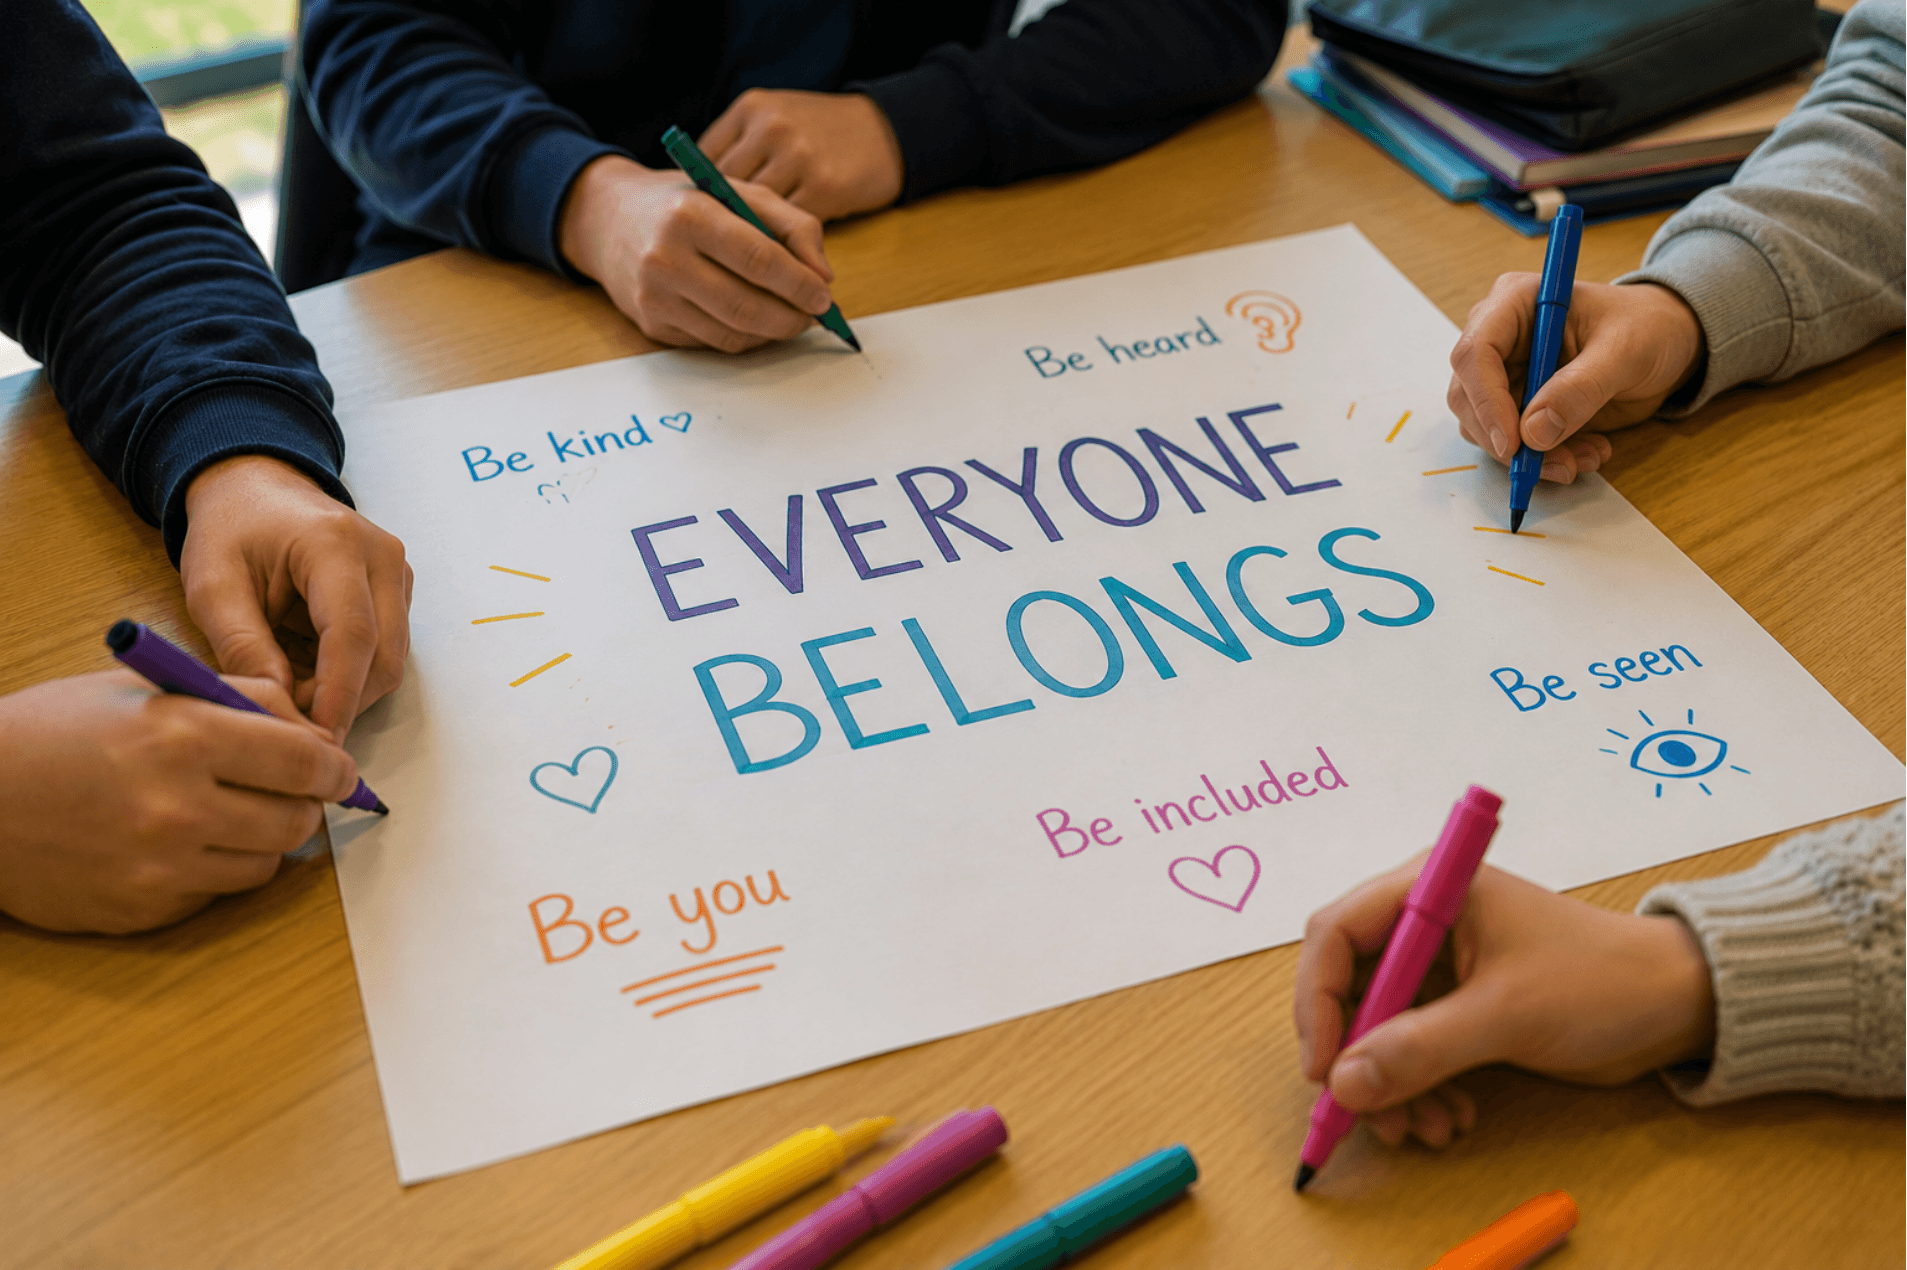 Be heard
Be kind
EVERYONE
BELONGS
Be seen
Be included
Be you